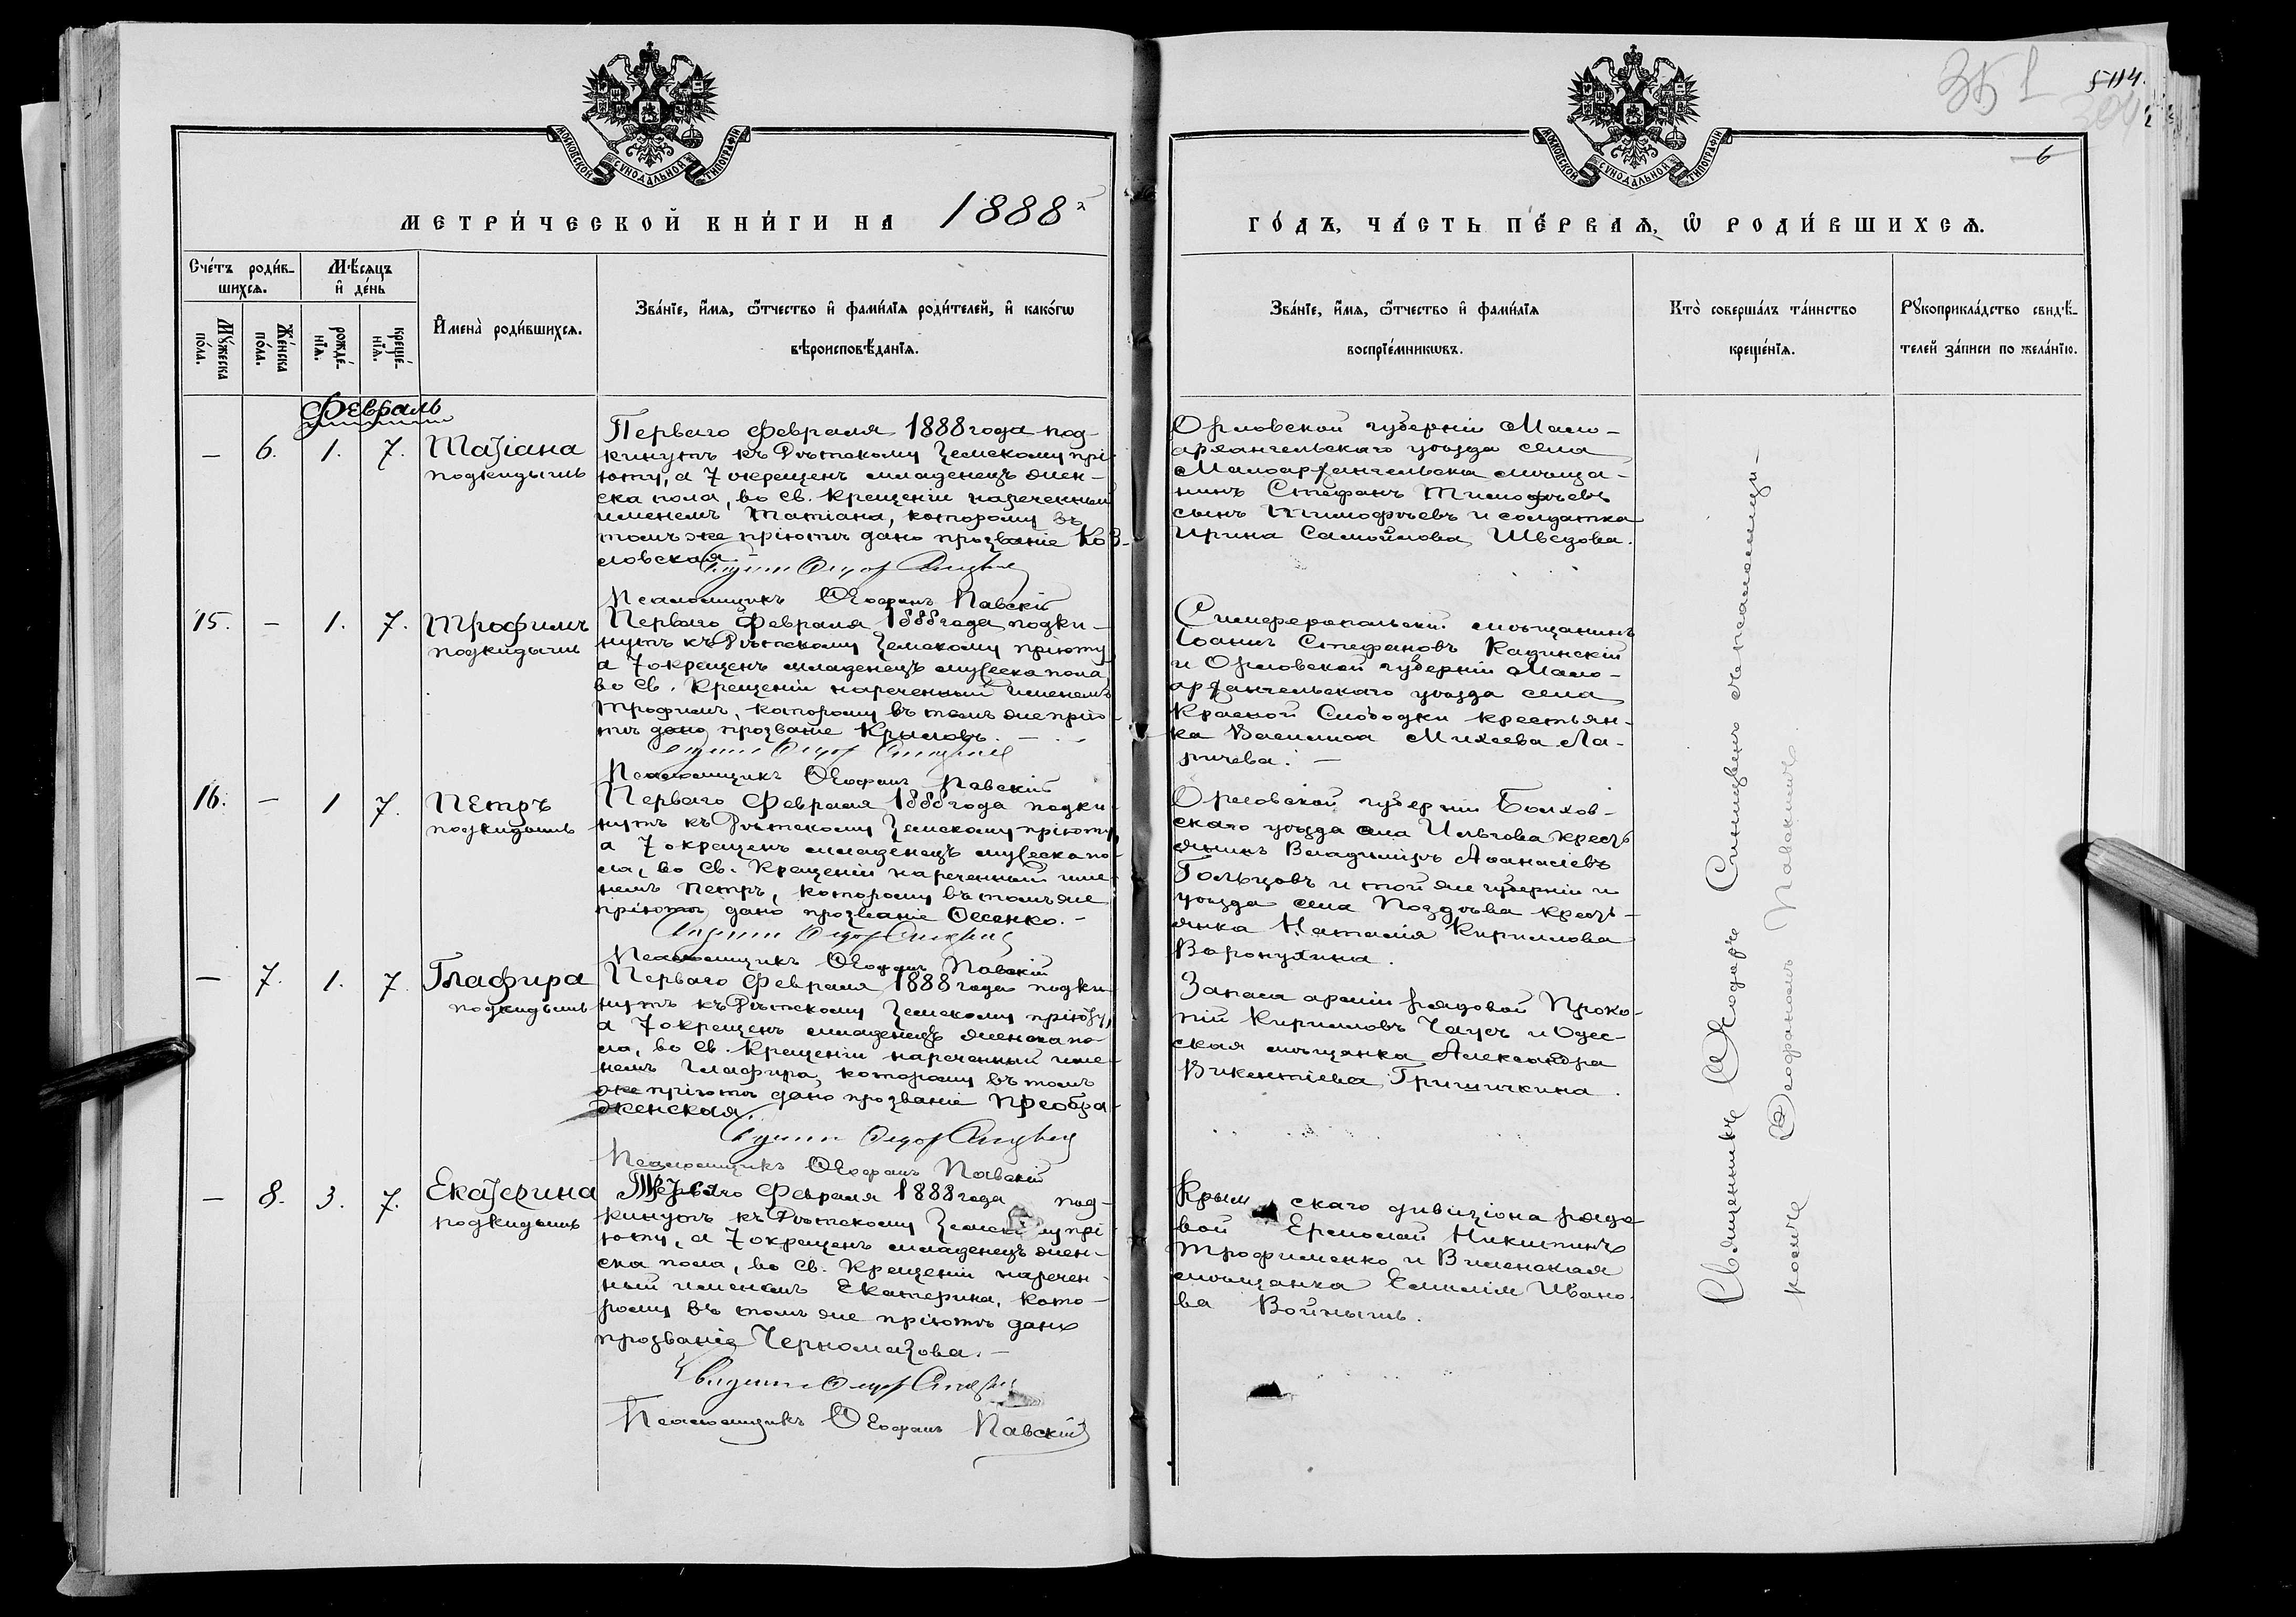 351
5114.
304
6
МОСКОВСКОЙ СУНОДАЛЬНОЙ ТИПОГРАФІИ
МОСКОВСКОЙ СУНОДАЛЬНОЙ ТИПОГРАФІИ
МЕТРИ́ЧЕСКОЙ КНИ́ГИ НА 1888
ГО́ДЪ, ЧА́СТЬ ПЕ́РВАѦ, Ѡ҆ РОДИ́ВШИХСѦ.
Сче́тъ роди́в-
шихсѧ.
Мѣ́сѧцъ
и҆ де́нь
Мꙋ́жеска
по́ла.
Же́нска
по́ла.
рожде́-
нїѧ.
креще́-
нїѧ.
И҆мена̀ роди́вшихсѧ.
Зва́нїе, и҆́мѧ, ѻ҆́тчество и҆ фами́лїѧ роди́телей, и҆ како́гѡ
вѣроисповѣ́данїѧ.
Зва́нїе, и҆́мѧ, ѻ҆́тчество и҆ фами́лїѧ
воспрїе́мникѡвъ.
Кто̀ соверша́лъ та́инство
креще́нїѧ.
Рꙋкоприкла́дство свидѣ́-
телей за́писи по жела́нїю.
Февраль
— 6. 1. 7.
Татіана
подкидышъ
Перваго Февраля 1888 года под-
кинутъ къ Дѣтскому Земскому прі-
юту, а 7 окрещенъ младенецъ жен-
ска пола, во св. Крещеніи нареченный
именемъ Татіана, которому въ
томъ же пріютѣ дано прозваніе Коз-
ловская.
Псаломщикъ Ѳеофанъ Павскій
Орловской губерніи Мало-
архангельскаго уѣзда села
Малоархангельска мѣща-
нинъ Стефанъ Тимофѣевъ
сынъ Тимофѣевъ и солдатка
Ирина Самойлова Швецова.
15. — 1. 7.
Трофимъ
подкидышъ
Перваго Февраля 1888 года подки-
нутъ къ Дѣтскому Земскому пріюту
а 7 окрещенъ младенецъ мужеска пола
во Св. Крещеніи нареченный именемъ
Трофимъ, которому въ томъ же прію-
тѣ дано прозваніе Крыловъ. —
Псаломщикъ Ѳеофанъ Павскій
Симферопольскій мѣщанинъ
Іоаннъ Стефановъ Кадинскій
и Орловской губерніи Мало-
архангельскаго уѣзда села
Красной Слободки крестьян-
ка Василиса Михеева Ла-
ричева. —
16. — 1 7.
Петръ
подкидышъ
Перваго Февраля 1888 года подки-
нутъ къ Дѣтскому Земскому пріюту,
а 7 окрещенъ младенецъ мужеска по-
ла, во Св. Крещеніи нареченный име-
немъ Петръ, которому въ томъ же
пріютѣ дано прозваніе Осенко. —
Псаломщикъ Ѳеофанъ Павскій
Орловской губерніи Болхов-
скаго уѣзда села Ильгова кресть-
янинъ Владиміръ Аѳанасіевъ
Гольцовъ и той же губерніи и
уѣзда села Поздѣева кресть-
янка Наталія Кириллова
Воронухина.
— 7. 1. 7
Глафира
подкидышъ
Перваго Февраля 1888 года подки-
нутъ къ Дѣтскому Земскому пріюту,
а 7 окрещенъ младенецъ женска по-
ла, во Св. Крещеніи нареченный име-
немъ Глафира, которому въ томъ
же пріютѣ дано прозваніе Преобра-
женская.
Псаломщикъ Ѳеофанъ Павскій
Запаса арміи рядовой Проко-
пій Кирилловъ Чаусъ и Одес-
ская мѣщанка Александра
Викентіева Гришичкина.
— 8. 3. 7.
Екатерина
подкидышъ
Февраля 1888 года под-
кинутъ къ Дѣтскому Земскому прі-
юту, а 7 окрещенъ младенецъ жен-
ска пола, во Св. Крещеніи наречен-
ный именемъ Екатерина, кото-
рому въ томъ же пріютѣ дано
прозваніе Черномазова. —
Псаломщикъ Ѳеофанъ Павскій
Крымскаго дивизіона рядо-
вой Ермолай Никитинъ
Трофименко и Виленская
мѣщанка Емилія Ивано-
ва Войнышъ.
Священникъ Ѳеодоръ Синицынъ съ псаломщи-
комъ Ѳеофаномъ Павскимъ.